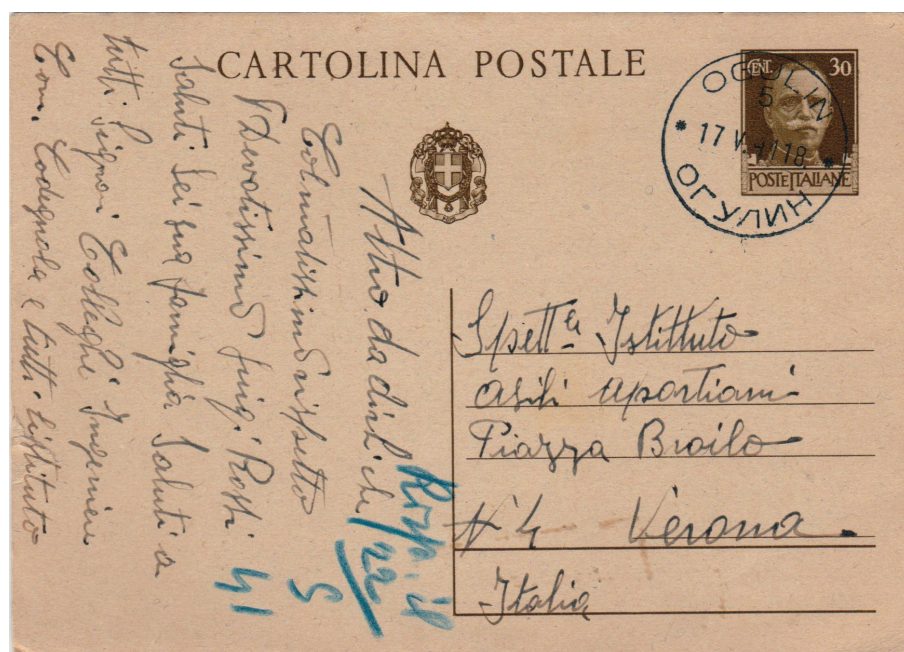 CARTOLINA POSTALE
CENT. 30
POSTE ITALIANE
OGULIN
5
17 V. 41 18
ОГУЛИН
Spett.le Istittuto
Asili Aportiani
Piazza Broilo
N 4 Verona
Italia
Altro da dirli che
Colmatissimo rispetto
Devotissimo Luigi Rossi
Saluti Lei sua famiglia Saluti a
tutti Signori Colleghi Ingeniere
Com. Codignola e tutti Listituto
Risp. il
22/
5
41